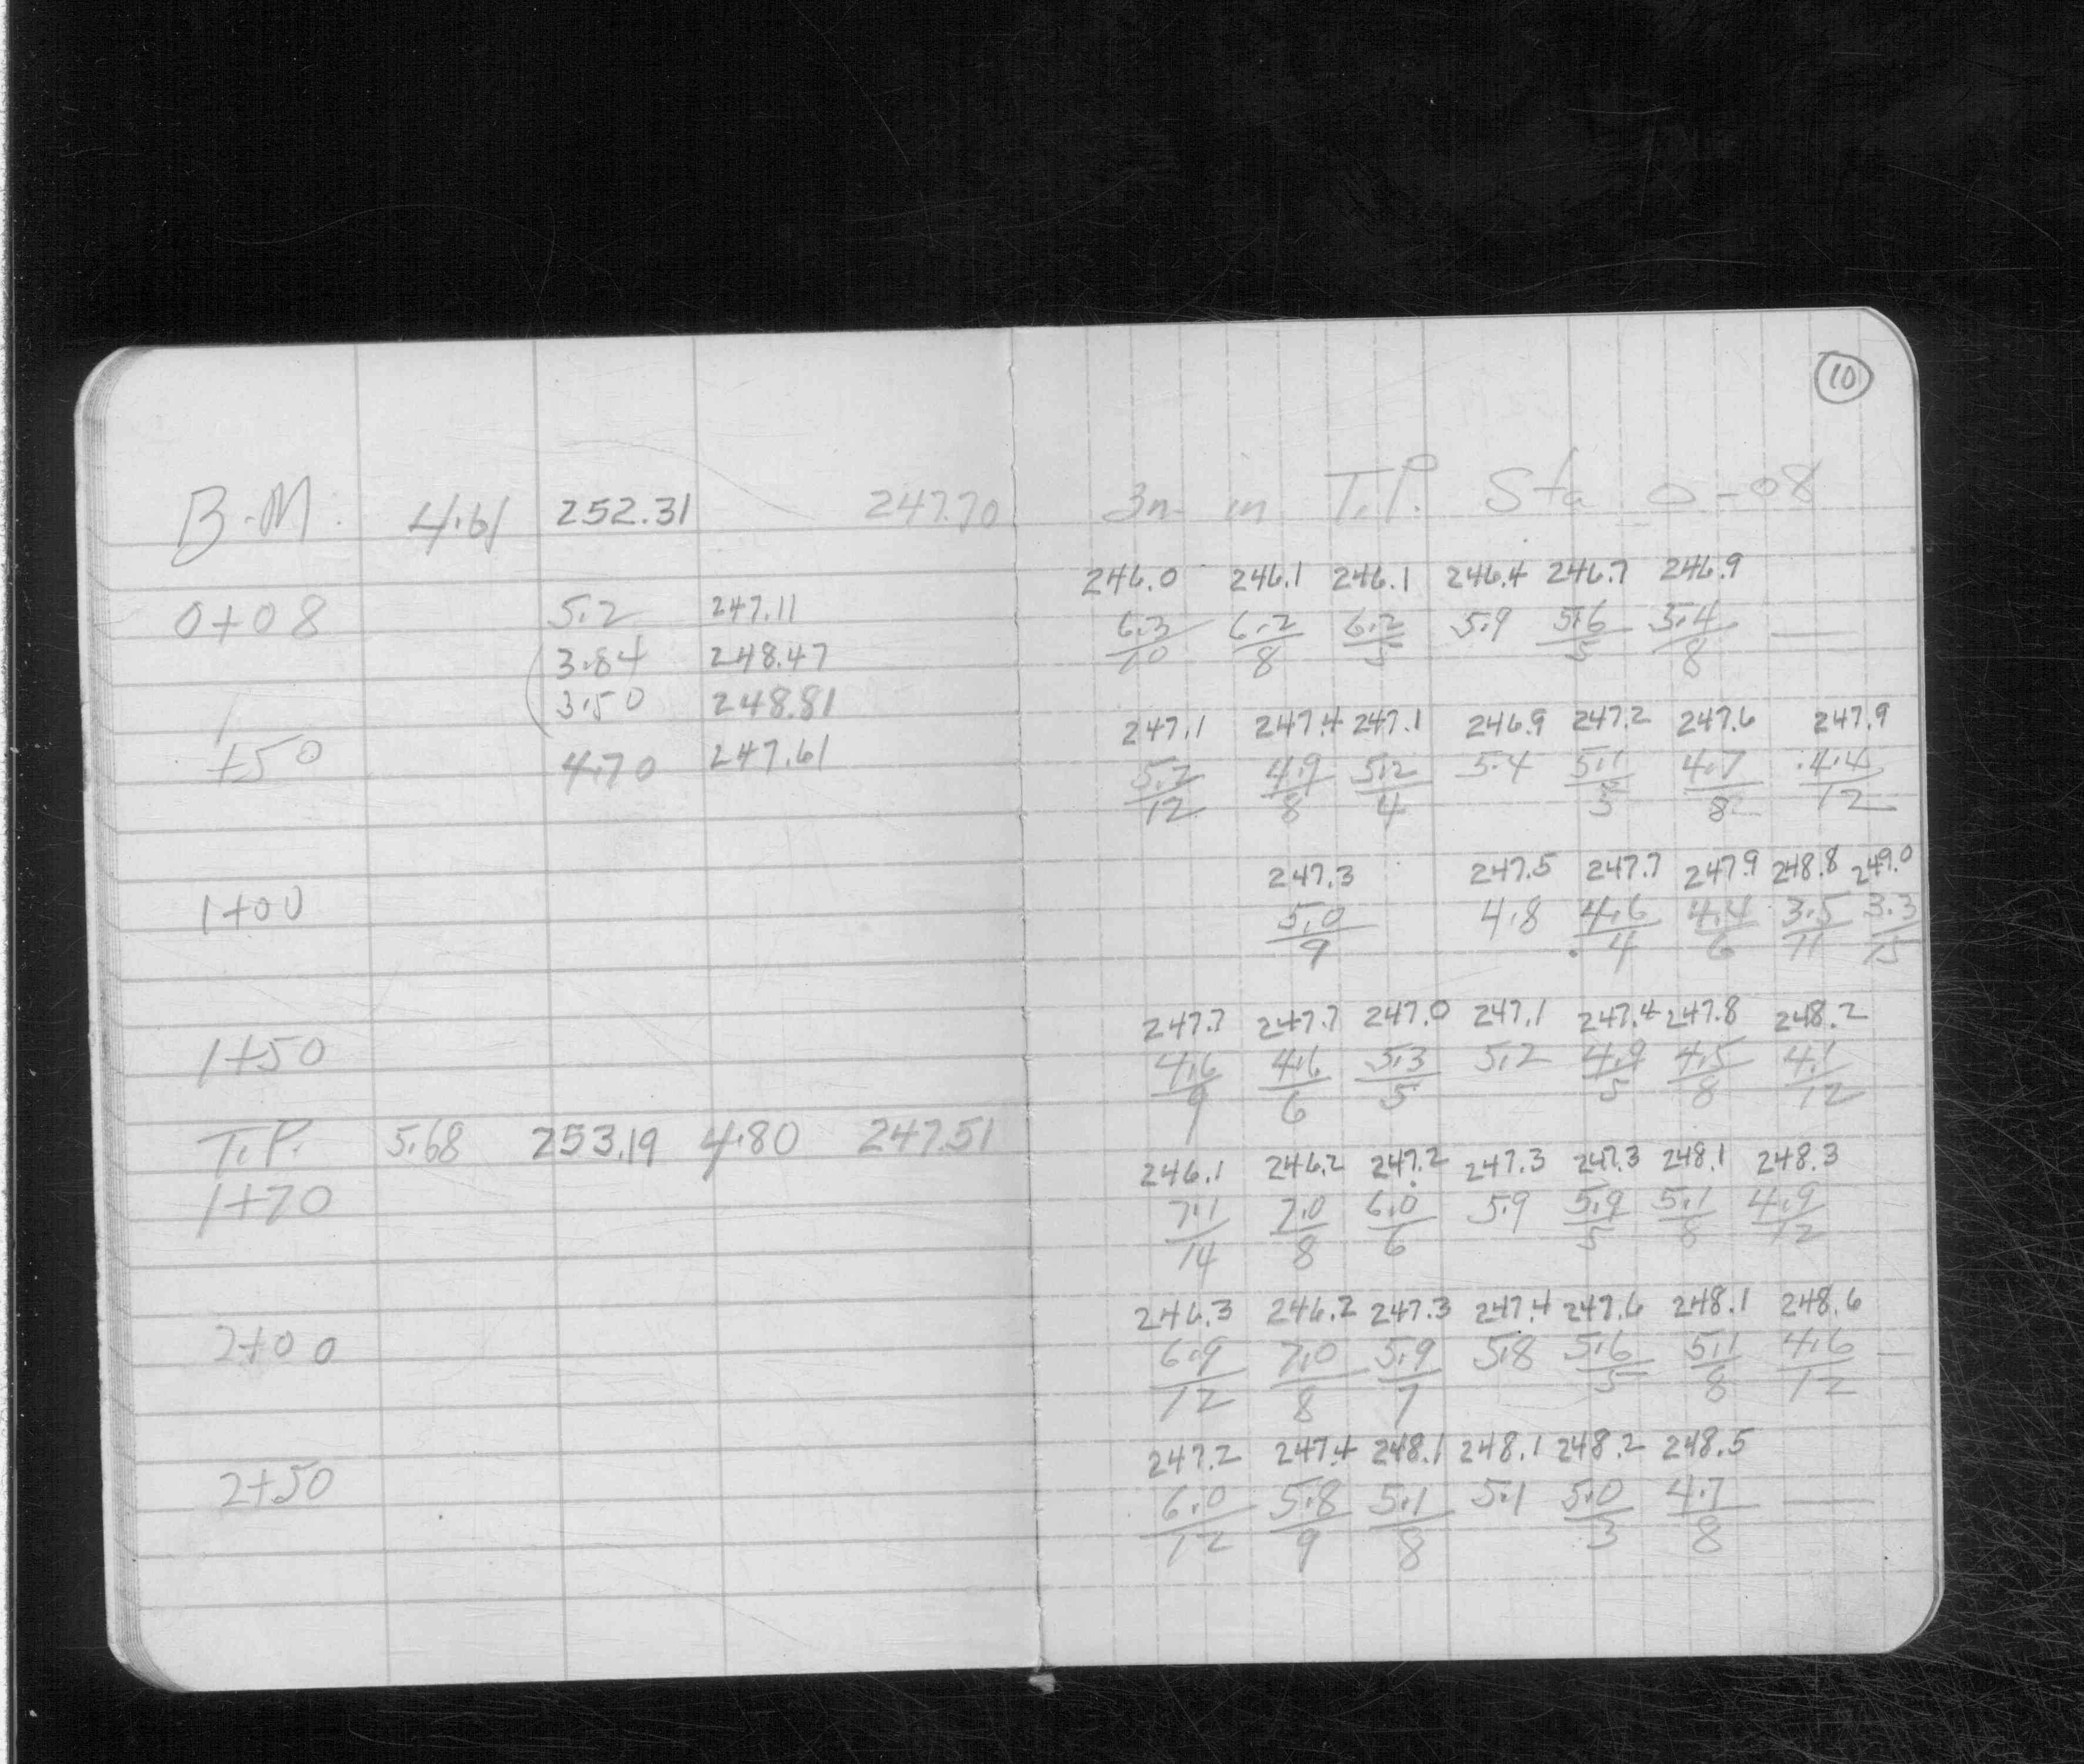 10
B.M. 4.61 252.31 247.70 in T.P. Sta 0-08
246.0 246.1 246.1 246.4 246.7 246.9
0+08 5.2 247.11 6.3/10 6.2/8 6.2/5 5.9 5.6/5 5.4/8
3.84 248.47
3.50 248.81
247.1 247.4 247.1 246.9 247.2 247.6 247.9
+50 4.70 247.61 5.2/12 4.9/8 5.2/4 5.4 5.1/5 4.7/8 4.4/12
247.3 247.5 247.7 247.9 248.8 249.0
1+00 5.0/9 4.8 4.6/4 4.4/6 3.5/11 3.3/15
247.7 247.7 247.0 247.1 247.4 247.8 248.2
1+50 4.6/9 4.6/6 5.3/5 5.2 4.9/5 4.5/8 4.1/12
T.P. 5.68 253.19 4.80 247.51
246.1 246.2 247.2 247.3 247.3 248.1 248.3
1+70 7.1/14 7.0/8 6.0/6 5.9 5.9/5 5.1/8 4.9/12
246.3 246.2 247.3 247.4 247.6 248.1 248.6
2+00 6.9/12 7.0/8 5.9/7 5.8 5.6/5 5.1/8 4.6/12
247.2 247.4 248.1 248.1 248.2 248.5
2+50 6.0/12 5.8/9 5.1/8 5.1 5.0/3 4.7/8